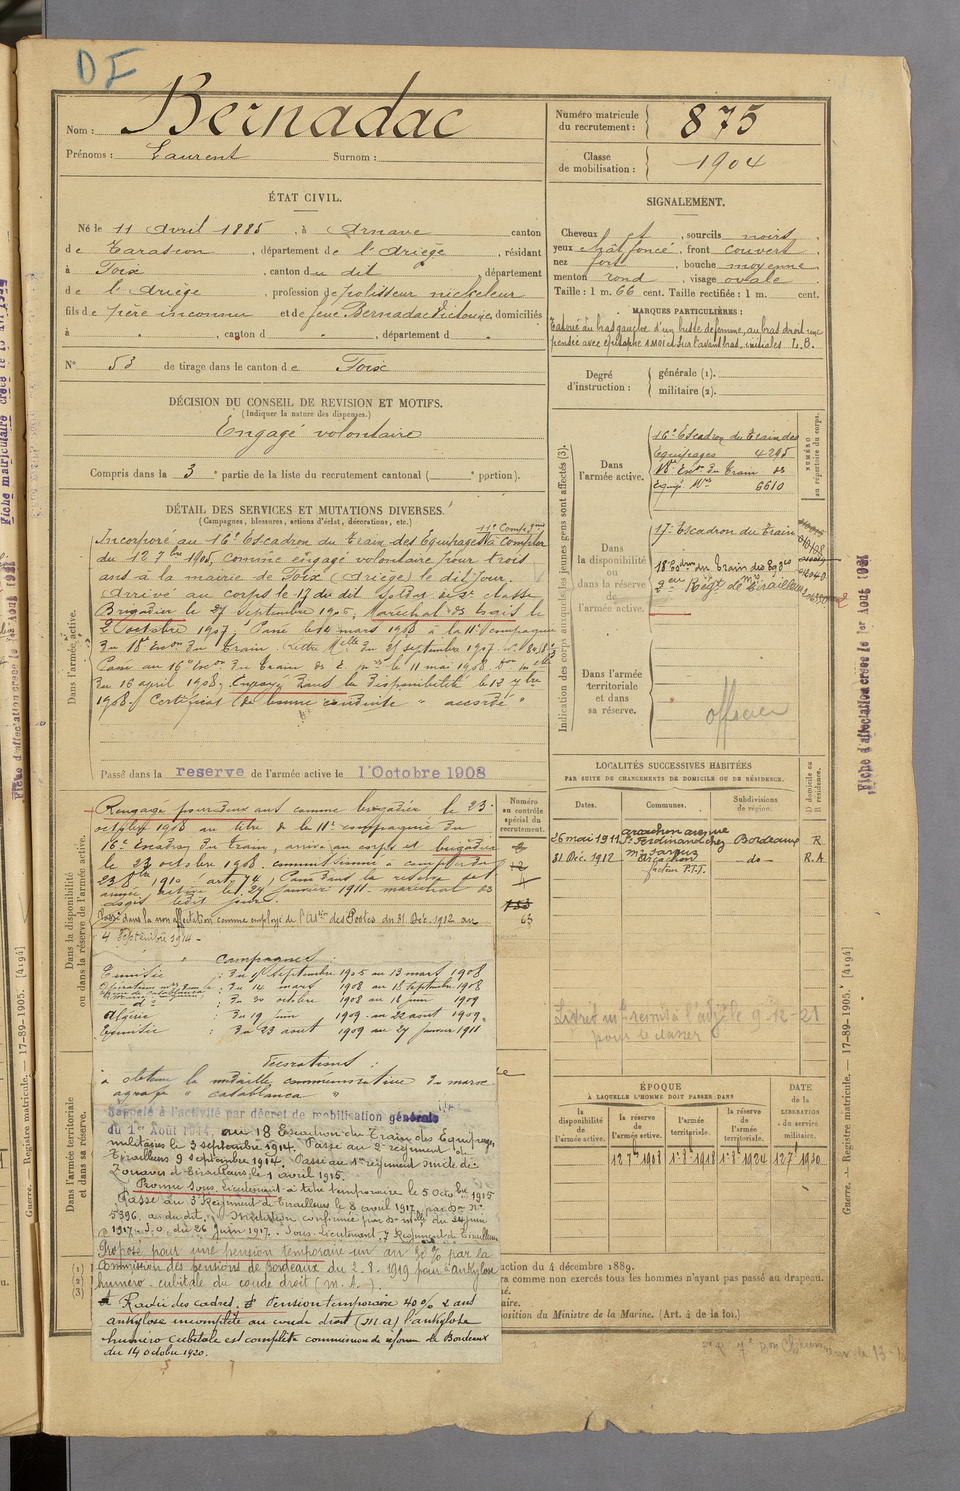 DF
Nom : Bernadac
Prénoms : Laurent Surnom :
Numéro matricule du recrutement : 875
Classe de mobilisation : 1904
ÉTAT CIVIL.
Né le 11 Avril 1885, à Arnave canton
de Tarascon, département de l'Ariège, résidant
à Foix, canton du dit, département
de l'Ariège, profession de polisseur nickeleur
fils de père inconnu et de feue Bernadac Victorine, domiciliés
à , canton d , département d
N° 53 de tirage dans le canton de Foix
DÉCISION DU CONSEIL DE REVISION ET MOTIFS.
(Indiquer la nature des dispenses.)
Engagé volontaire
Compris dans la 3e partie de la liste du recrutement cantonal ( portion).
SIGNALEMENT.
Cheveux et , sourcils noirs,
yeux chât. foncé, front couvert,
nez fort, bouche moyenne,
menton rond, visage ovale
Taille : 1 m. 66 cent. Taille rectifiée : 1 m. cent.
MARQUES PARTICULIÈRES :
Tatoué au bras gauche d'un buste de femme, au bras droit une
pensée avec épitaphe à moi et sur l'avant bras, initiales L. B.
Degré d'instruction : générale (1).
militaire (2).
DÉTAIL DES SERVICES ET MUTATIONS DIVERSES.
(Campagnes, blessures, actions d'éclat, décorations, etc.)
Dans l'armée active.
11e Compagnie
Incorporé au 16e Escadron du Train des Equipages à compter
du 12 7bre 1905, comme engagé volontaire pour trois
ans à la mairie de Foix (Ariège) le dit jour.
Arrivé au corps le 17 du dit Soldat de 2e classe
Brigadier le 27 Septembre 1906, Maréchal des Logis le
2 octobre 1907, Passé le 14 mars 1908 à la 11e compagnie
du 18e Escon du Train. Lettre Mlle du 27 septembre 1907.
Passé au 16e Escon du Train des é. mres le 11 mai 1908. Don mlle
du 16 april 1908, Envoyé dans la disponibilité le 12 7bre
1908. Certificat de bonne conduite " accordé "
Passé dans la reserve de l'armée active le 1 Octobre 1908
Indication des corps auxquels les jeunes gens sont affectés (3).
NUMÉRO au répertoire du corps.
Dans l'armée active.
16e Escadron du Train des
Equipages 4295
18e Escon du Train des
Equip. Mres 6610
Dans la disponibilité ou dans la réserve de l'armée active.
17e Escadron du Train
18e Esdron du Train des Eqges
2eme Régt de Mche Tirailleurs
Dans l'armée territoriale et dans sa réserve.
officier
Dans la disponibilité ou dans la réserve de l'armée active.
Rengagé pour deux ans comme brigadier le 23
octobre 1908 au titre de la 11e compagnie du
16e Escadron du train, arrivé au corps et brigadier
le 23 octobre 1908. commissionné à compter du
23 8bre 1910 art 74, Passé dans la réserve de l'
armée active le 27 janvier 1911. maréchal des
logis ledit jour.
Passé dans la non affectation comme employé de l'Aton des Postes du 31 Déc. 1912 au
4 Septembre 1914 -
Campagnes :
Tunisie : Du 17 septembre 1905 au 13 mars 1908
: Du 14 mars 1908 au 18 septembre 1908
: Du 30 octobre 1908 au 18 juin 1909
Algérie : Du 19 juin 1909 au 22 aout 1909
Tunisie : Du 23 aout 1909 au 27 janvier 1911
Décorations :
a obtenu la médaille commémorative du maroc
agrafe " Casablanca "
Dans l'armée territoriale et dans sa réserve.
Rappelé à l'activité par décret de mobilisation générale
du 1er Août 1914, au 18 Escadron du Train des Equipages
militaires le 3 septembre 1914. Passé au 2e régiment de
Tirailleurs 9 septembre 1914. Passé au 1er régiment mixte de
Zouaves et Tirailleurs le 1 avril 1915.
Promu Sous Lieutenant à titre temporaire le 5 Octobre 1915
Passé au 3e Régiment de Tirailleurs le 8 avril 1917, par Don No
5396 du dit. Promotion confirmée par Don Mlle du 24 juin
1917. J.O. du 26 Juin 1917. Sous Lieutenant 7 Régiment de Tirailleurs
Proposé pour une pension temporaire un an 30% par la
Commission des pensions de Bordeaux du 2.8.1919 pour ankylose
huméro-cubitale du coude droit (M.A).
Rayé des cadres. Pension temporaire 40% 2 ans
ankylose incomplète au coude droit (M.A) l'ankylose
huméro cubitale est complète commission de réforme de Bordeaux
du 14 octobre 1920.
Numéro au contrôle spécial du recrutement.
63
LOCALITÉS SUCCESSIVES HABITÉES
PAR SUITE DE CHANGEMENTS DE DOMICILE OU DE RÉSIDENCE.
Dates. Communes. Subdivisions de région. D domicile ou R résidence.
26 mai 1911 Arcachon avenue St Ferdinand chez Mr Bordeaux R
31 Déc. 1912 Arcachon facteur P.T.T. - do - R.A
Livret mle remis à l'adjt le 9-12-21
pour le classer
ÉPOQUE
À LAQUELLE L'HOMME DOIT PASSER DANS
la disponibilité de l'armée active. la réserve de l'armée active. l'armée territoriale. la réserve de l'armée territoriale.
DATE de la LIBÉRATION du service militaire.
12 7bre 1908 1er 8bre 1918 1er 8bre 1924 12 7bre 1930
(1)
(2)
(3)
uction du 4 décembre 1889.
ra comme non exercés tous les hommes n'ayant pas passé au drapeau.
né.
aire.
position du Ministre de la Marine. (Art. 4 de la loi.)
Guerre. — Registre matricule. — 17-89-1905. [4194]
Fiche d'affectation créée le 1er Août 1921